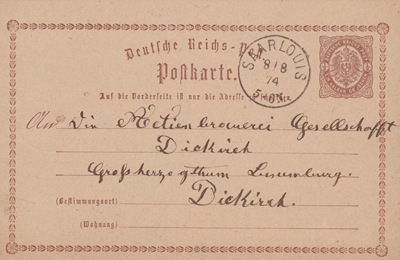 Deutsche Reichs-Post
Postkarte.
SAARLOUIS
8/8
74
5-6N.
Auf die Vorderseite ist nur die Adresse zu schreiben.
An Die Actienbrauerei Gesellschafft
Diekirch
Großherzogthum Luxemburg.
(Bestimmungsort) Diekirch.
(Wohnung)